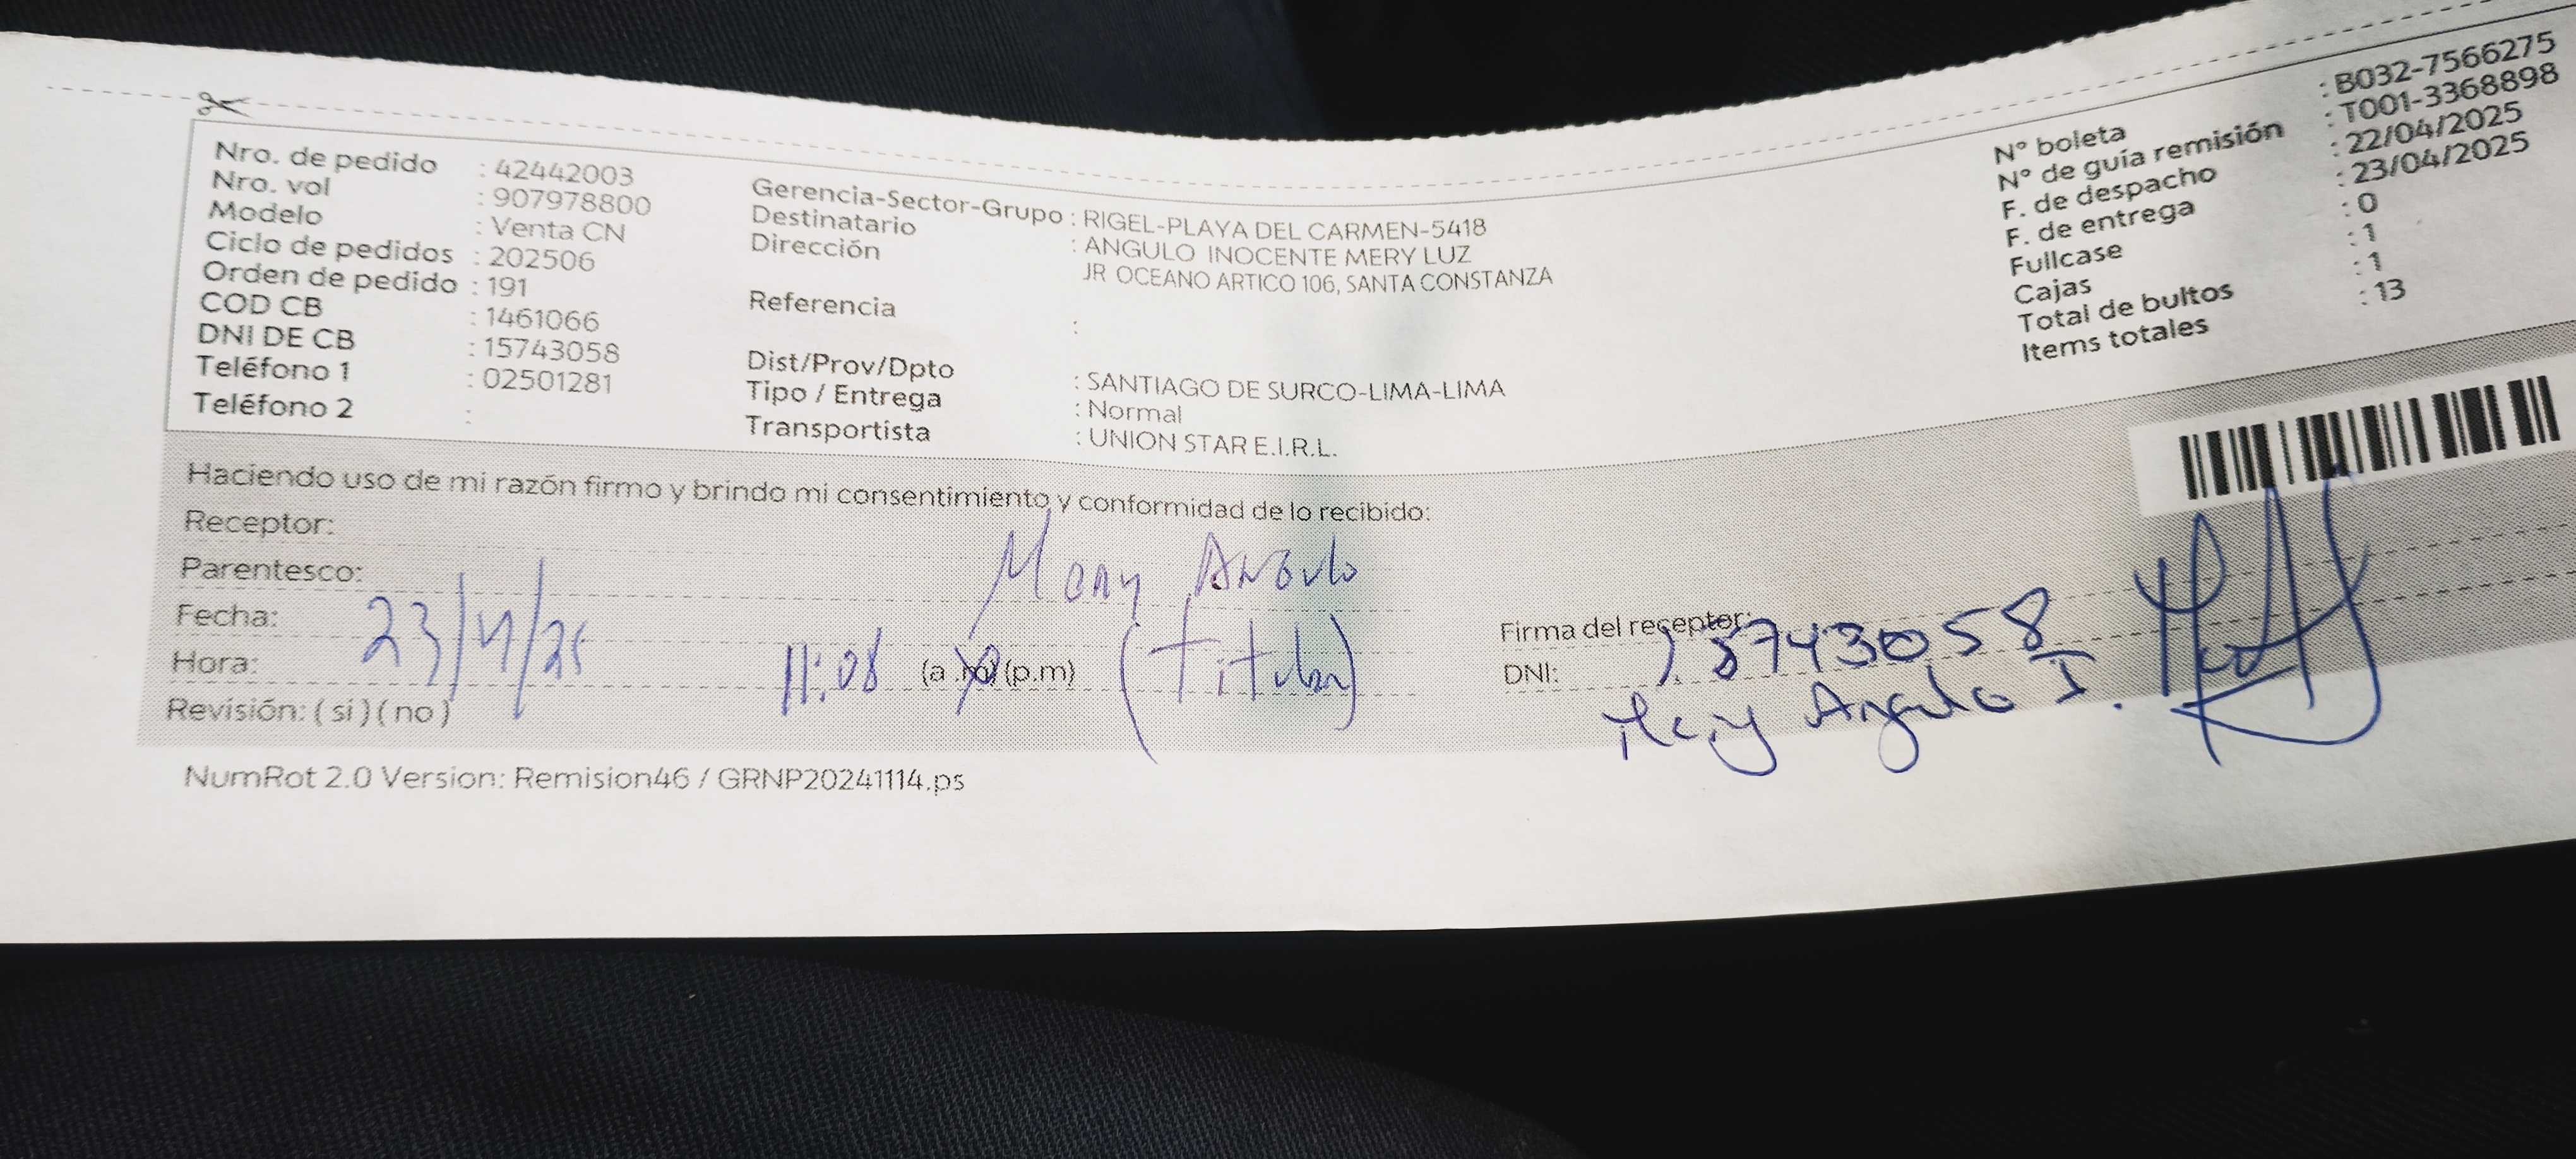 Nro. de pedido : 42442003
Nro. vol : 907978800
Modelo : Venta CN
Ciclo de pedidos : 202506
Orden de pedido : 191
COD CB : 1461066
DNI DE CB : 15743058
Teléfono 1 : 02501281
Teléfono 2 :
Gerencia-Sector-Grupo : RIGEL-PLAYA DEL CARMEN-5418
Destinatario : ANGULO INOCENTE MERY LUZ
Dirección JR OCEANO ARTICO 106, SANTA CONSTANZA
Referencia :
Dist/Prov/Dpto : SANTIAGO DE SURCO-LIMA-LIMA
Tipo / Entrega : Normal
Transportista : UNION STAR E.I.R.L.
N° boleta : B032-7566275
N° de guía remisión : T001-3368898
F. de despacho : 22/04/2025
F. de entrega : 23/04/2025
Fullcase : 0
Cajas : 1
Total de bultos : 1
Items totales : 13
Haciendo uso de mi razón firmo y brindo mi consentimiento y conformidad de lo recibido:
Receptor: Mery Angulo
Parentesco: (Titular)
Fecha: 23/4/25
Hora: 11:08 (a.m) (p.m)
Revisión: ( si ) ( no )
Firma del receptor:
DNI: 15743058
Mery Angulo I.
NumRot 2.0 Version: Remision46 / GRNP20241114.ps